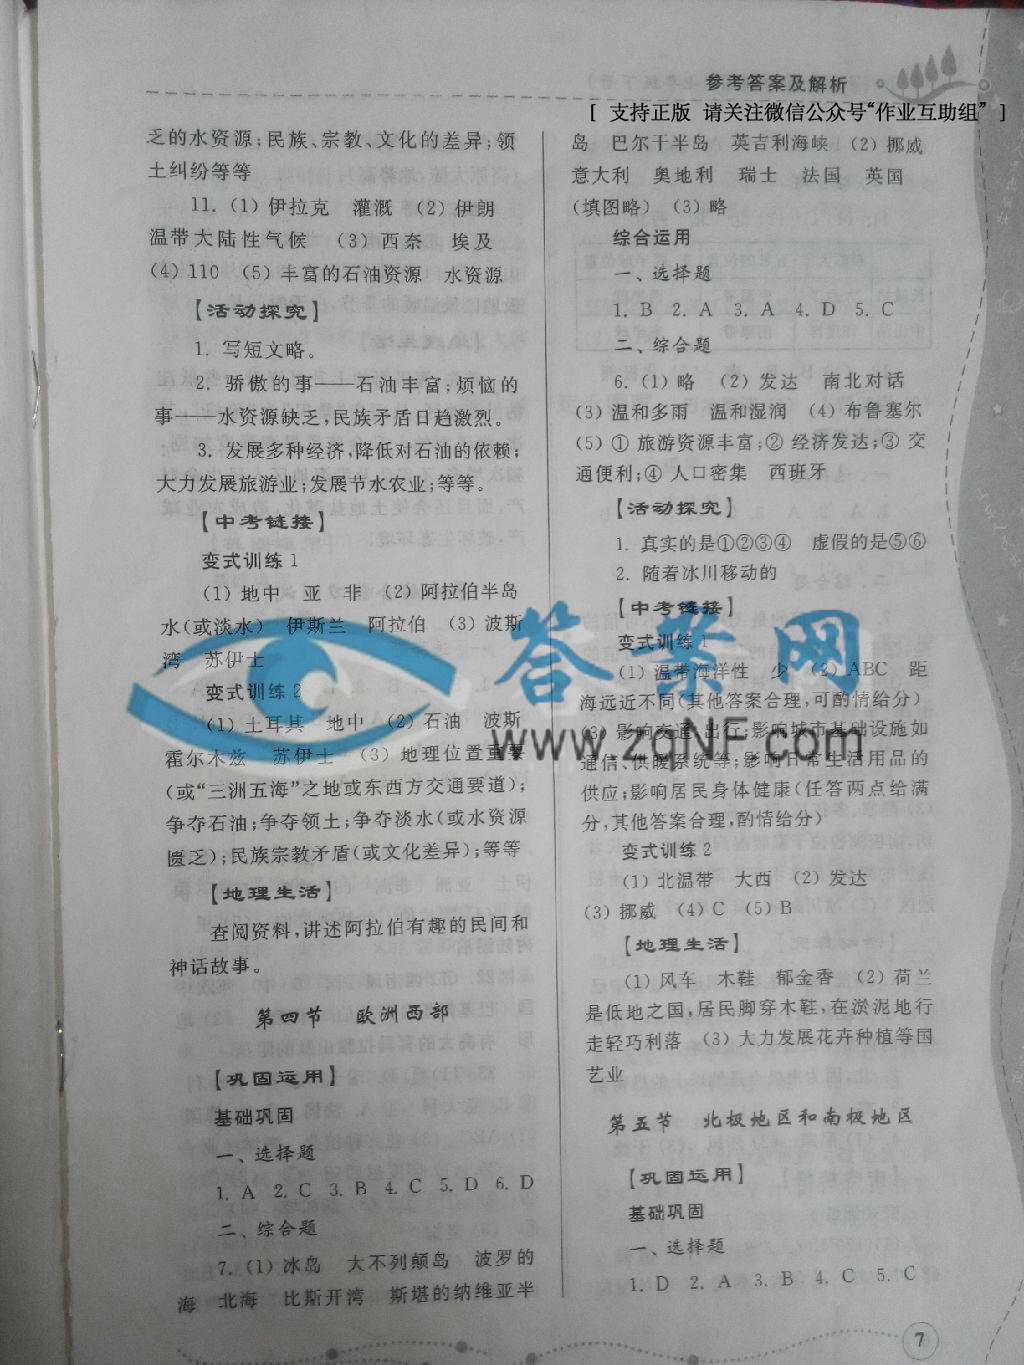 参考答案及解析
[ 支持正版 请关注微信公众号“作业互助组” ]
乏的水资源;民族、宗教、文化的差异;领
土纠纷等等
11. (1) 伊拉克 灌溉 (2) 伊朗
温带大陆性气候 (3) 西奈 埃及
(4) 110 (5) 丰富的石油资源 水资源
【活动探究】
1. 写短文略。
2. 骄傲的事——石油丰富;烦恼的
事——水资源缺乏,民族矛盾日趋激烈。
3. 发展多种经济,降低对石油的依赖;
大力发展旅游业;发展节水农业;等等。
【中考链接】
变式训练 1
(1) 地中 亚 非 (2) 阿拉伯半岛
水(或淡水) 伊斯兰 阿拉伯 (3) 波斯
湾 苏伊士
变式训练 2
(1) 土耳其 地中 (2) 石油 波斯
霍尔木兹 苏伊士 (3) 地理位置重要
(或“三洲五海”之地或东西方交通要道);
争夺石油;争夺领土;争夺淡水(或水资源
匮乏);民族宗教矛盾(或文化差异);等等
【地理生活】
查阅资料,讲述阿拉伯有趣的民间和
神话故事。
第四节 欧洲西部
【巩固运用】
基础巩固
一、选择题
1. A 2. C 3. B 4. C 5. D 6. D
二、综合题
7. (1) 冰岛 大不列颠岛 波罗的
海 北海 比斯开湾 斯堪的纳维亚半
岛 巴尔干半岛 英吉利海峡 (2) 挪威
意大利 奥地利 瑞士 法国 英国
(填图略) (3) 略
综合运用
一、选择题
1. B 2. A 3. A 4. D 5. C
二、综合题
6. (1) 略 (2) 发达 南北对话
(3) 温和多雨 温和湿润 (4) 布鲁塞尔
(5) ① 旅游资源丰富;② 经济发达;③ 交
通便利;④ 人口密集 西班牙
【活动探究】
1. 真实的是①②③④ 虚假的是⑤⑥
2. 随着冰川移动的
【中考链接】
变式训练 1
(1) 温带海洋性 少 (2) ABC 距
海远近不同(其他答案合理,可酌情给分)
(3) 影响交通、出行;影响城市基础设施如
通信、供暖系统等;影响日常生活用品的
供应;影响居民身体健康(任答两点给满
分,其他答案合理,酌情给分)
变式训练 2
(1) 北温带 大西 (2) 发达
(3) 挪威 (4) C (5) B
【地理生活】
(1) 风车 木鞋 郁金香 (2) 荷兰
是低地之国,居民脚穿木鞋,在淤泥地行
走轻巧利落 (3) 大力发展花卉种植等园
艺业
第五节 北极地区和南极地区
【巩固运用】
基础巩固
一、选择题
1. D 2. A 3. B 4. C 5. C
答案网
www.zqNF.com
7